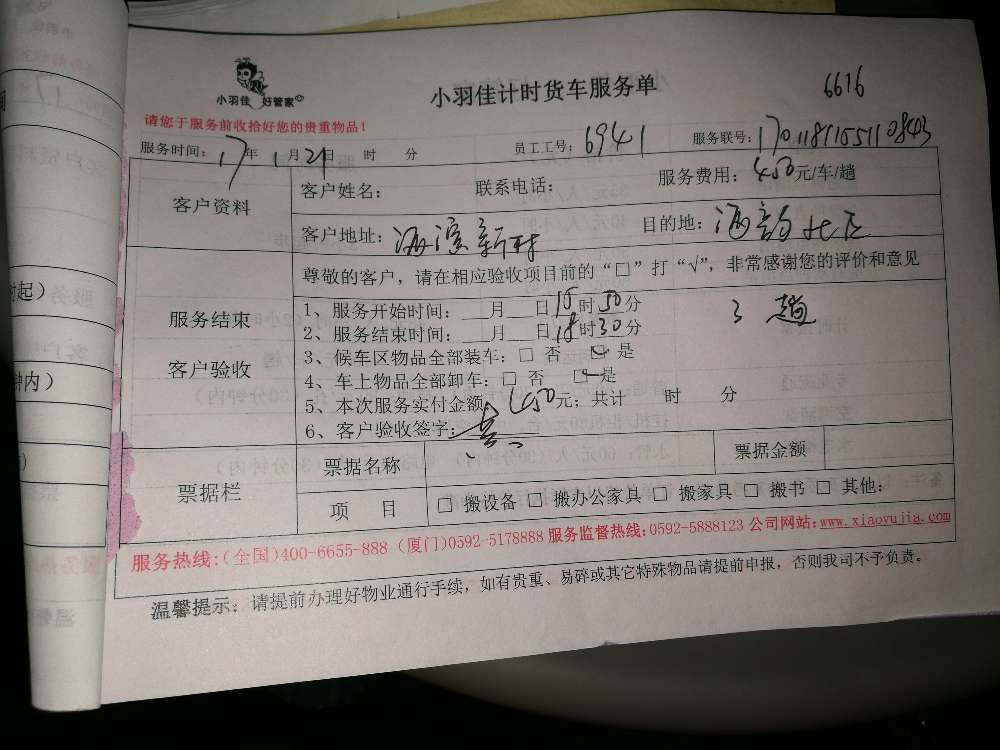 小羽佳 好管家
小羽佳计时货车服务单
6616
请您于服务前收拾好您的贵重物品！
服务时间：17年1月21日 时 分 员工工号：6941 服务联号：
客户资料
客户姓名： 联系电话： 服务费用：450元/车/趟
客户地址：海滨新村 目的地：海韵北区
服务结束
客户验收
尊敬的客户，请在相应验收项目前的“□”打“√”，非常感谢您的评价和意见
1、服务开始时间：___月___日15时50分 3趟
2、服务结束时间：___月___日18时30分
3、候车区物品全部装车：□ 否 □ 是
4、车上物品全部卸车：□ 否 □ 是
5、本次服务实付金额：450元；共计 时 分
6、客户验收签字：
票据栏
票据名称 票据金额
项 目 □ 搬设备 □ 搬办公家具 □ 搬家具 □ 搬书 □ 其他：
服务热线：(全国)400-6655-888 (厦门)0592-5178888 服务监督热线：0592-5888123 公司网站：www.xiaoyujia.com
温馨提示：请提前办理好物业通行手续，如有贵重、易碎或其它特殊物品请提前申报，否则我司不予负责。
时起）
钟内）